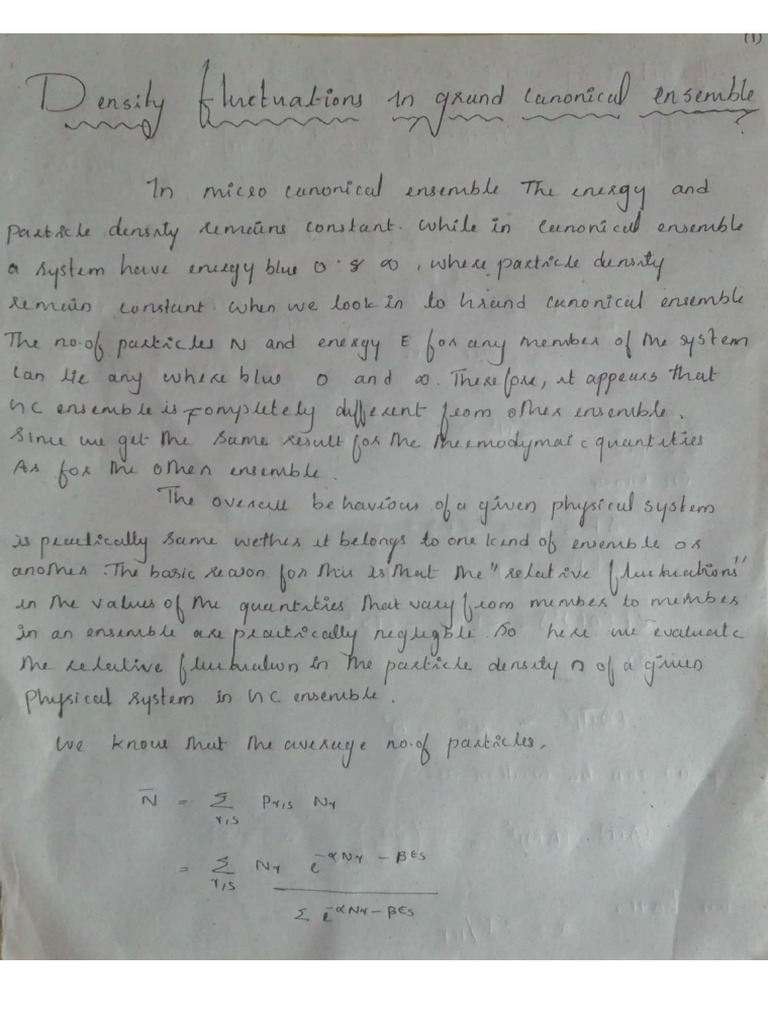 (1)
Density fluctuations in grand canonical ensemble
In micro canonical ensemble The energy and
particle density remains constant. while in canonical ensemble
a system have energy b/w 0 & ∞, where particle density
remain constant when we look in to Grand canonical ensemble
The no.of particles N and energy E for any member of the system
can lie any where b/w 0 and ∞. Therefore, it appears that
GC ensemble is completely different from other ensemble.
Since we get the same result for the thermodymaic quantities
As for the other ensemble.
The overall behaviour of a given physical system
is practically same wether it belongs to one kind of ensemble or
another. The basic reason for this is that the "relative fluctuations"
in the values of the quantities that vary from member to member
in an ensemble are practically neglegble. So here we evaluate
the relative fluctuation in the particle density n of a given
physical system in GC ensemble.
We know that the average no.of particles,
N̄ = Σ_{r,s} P_{r,s} N_r
= Σ_{r,s} N_r e^{-αN_r - βE_s}
Σ e^{-αN_r - βE_s}